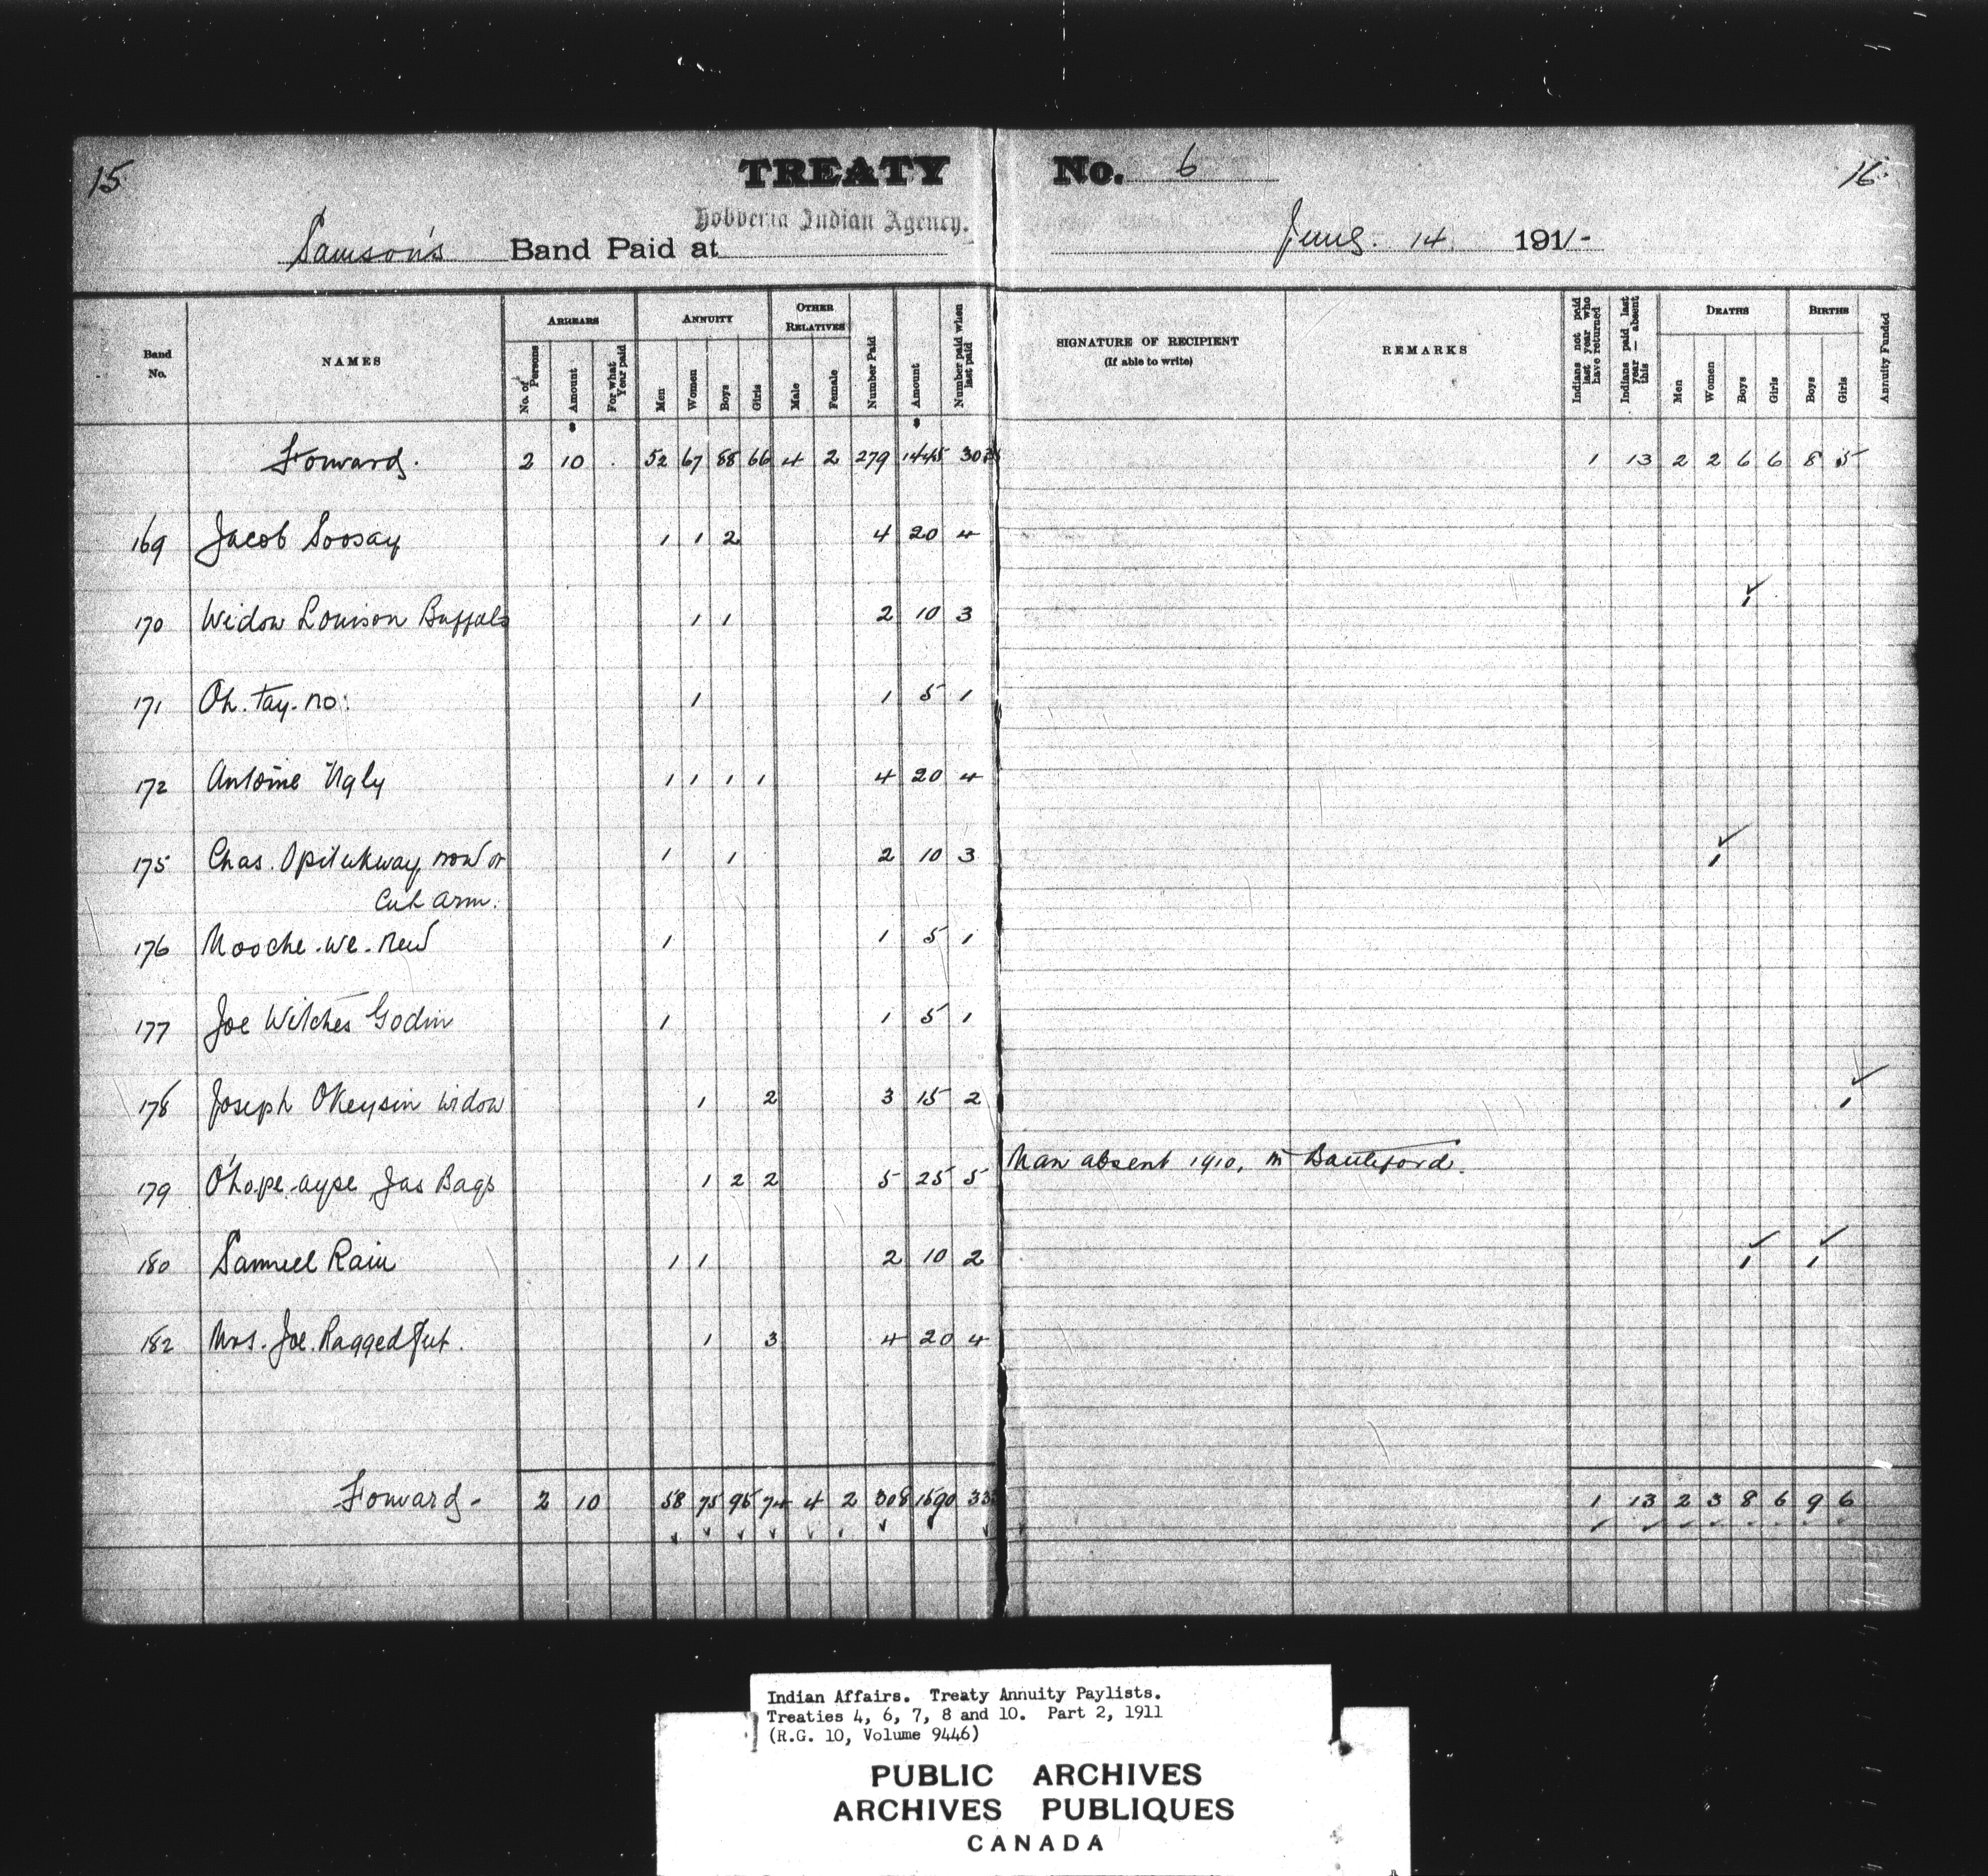 15
TREATY No. 6
16
Hobbema Indian Agency.
Samson's Band Paid at June 14 1911-
Band No. NAMES ARREARS ANNUITY OTHER RELATIVES Number Paid Amount Number paid when last paid SIGNATURE OF RECIPIENT (If able to write) REMARKS Indians not paid last year who have returned Indians paid last year — absent this DEATHS BIRTHS Annuity Funded
No. of Persons Amount For what Year paid Men Women Boys Girls Male Female Men Women Boys Girls Boys Girls
Forward. 2 10 . 52 67 88 66 4 2 279 1445 303 1 13 2 2 6 6 8 5
169 Jacob Soosay 1 1 2 4 20 4
170 Widow Louison Buffalo 1 1 2 10 3 1
171 Oh. tay. no: 1 1 5 1
172 Antoine Ugly 1 1 1 1 4 20 4
175 Chas. Opitukway, now or 1 1 2 10 3 1
Cut arm.
176 Mooche. we. new 1 1 5 1
177 Joe Witches Godin 1 1 5 1
178 Joseph Okeysin widow 1 2 3 15 2 1
Man absent 1910, in Battleford.
179 O'hope-aype Jas Bags 1 2 2 5 25 5
180 Samuel Rain 1 1 2 10 2 1 1
182 Mrs. Joe. Ragged 1 3 4 20 4
Forward - 2 10 58 75 95 74 4 2 308 1590 33 1 13 2 3 8 6 9 6
Indian Affairs. Treaty Annuity Paylists.
Treaties 4, 6, 7, 8 and 10. Part 2, 1911
(R.G. 10, Volume 9446)
PUBLIC ARCHIVES
ARCHIVES PUBLIQUES
CANADA